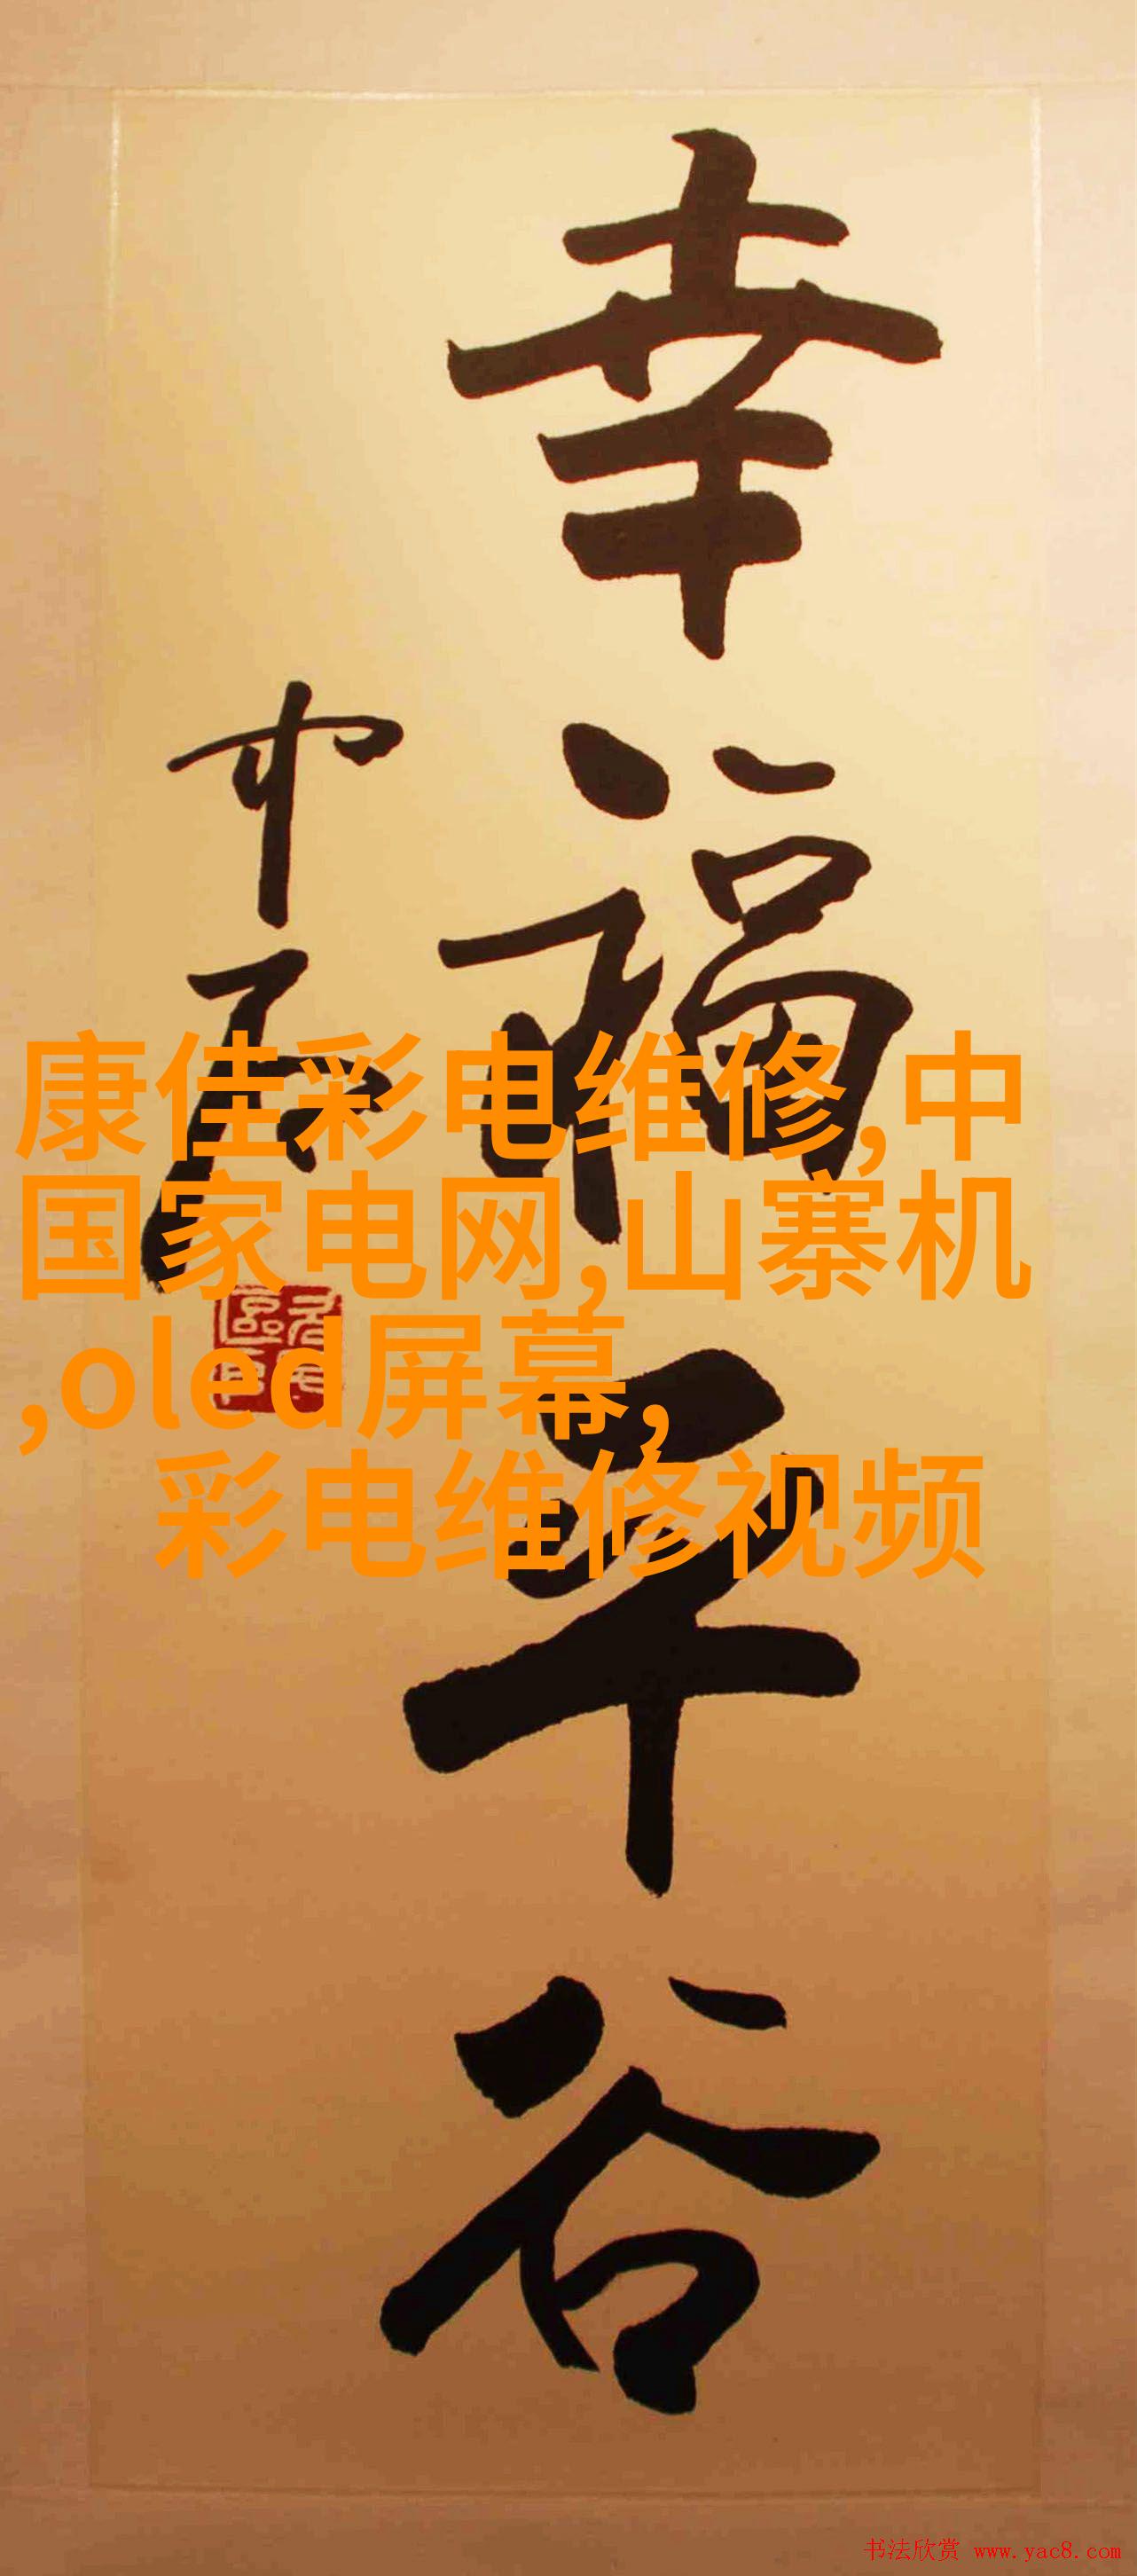 幸福平谷
康佳彩电维修,中
国家电网,山寨机
,oled屏幕,
彩电维修视频
书法欣赏 www.yac8.com